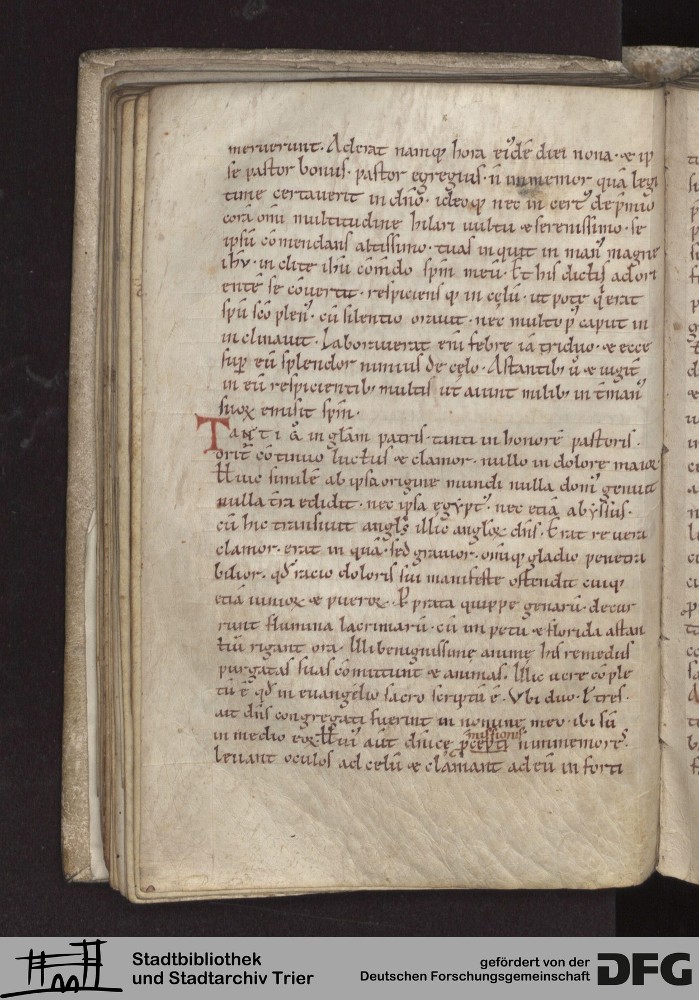 meruerunt. Aderat namq; hora eiꝰdē diei nona. & ip
se pastor bonus. pastor egregius. ñ inmemor quā legi
time certaverit in dño. ideoq; nec in certꝰ de pmio
corā omi multitudine hilari uultu & serenissimo. se
ipsū cōmendans altissimo. tuas inquit in manꝰ magne
ihū. in clite ihū cōmdo spm meū. Et his dictis ad ori
entē se cōvertit. respiciens q; in celū. ut pote q erat
spū sco plenꝰ. cū silentio orauit. nec multo p caput in
in clinauit. Laboraverat enī febre iā triduo. & ecce
sup eū splendor nimius de celo. Astantib; ū & uigit
in eū respicientib; multis ut aiunt milib; in tmanꝰ
suoꝝ emisit spm.
TANTI ā in glam patris. tanti in honorē pastoris.
orit cōtinuo luctus & clamor. nullo in dolore maior
Huic similē ab ipsa origine mundi nulla domꝰ genuit
nulla tra edidit. nec ipsa egyptꝰ. nec etiā abyssus.
cū hic transiuit angls illic angloꝝ dns. Erat re vera
clamor. erat in quā. sed grauior. omiq; gladio penetra
bilior. qd racio doloris sui manifeste ostendit cuiq;
etiā iunioꝝ & pueroꝝ. P prata quippe genarū. decur
runt flumina lacrimarū. cū in petu & florida astan
tiū rigant ora. Illi benignissime anime his remediis
purgatas suas cōmittunt & animas. Illic uere cōple
tū ē qd in euangelio sacro scriptū ē. Vbi duo. ł tres.
ait dns congregati fuerint in nomine meo. ibi sū
in medio eoꝝ. Huiꝰ aut diuice
missionis
pcepti ninmemores.
leuant oculos ad celū & clamant ad eū in forti
Stadtbibliothek
und Stadtarchiv Trier
gefördert von der
Deutschen Forschungsgemeinschaft
DFG